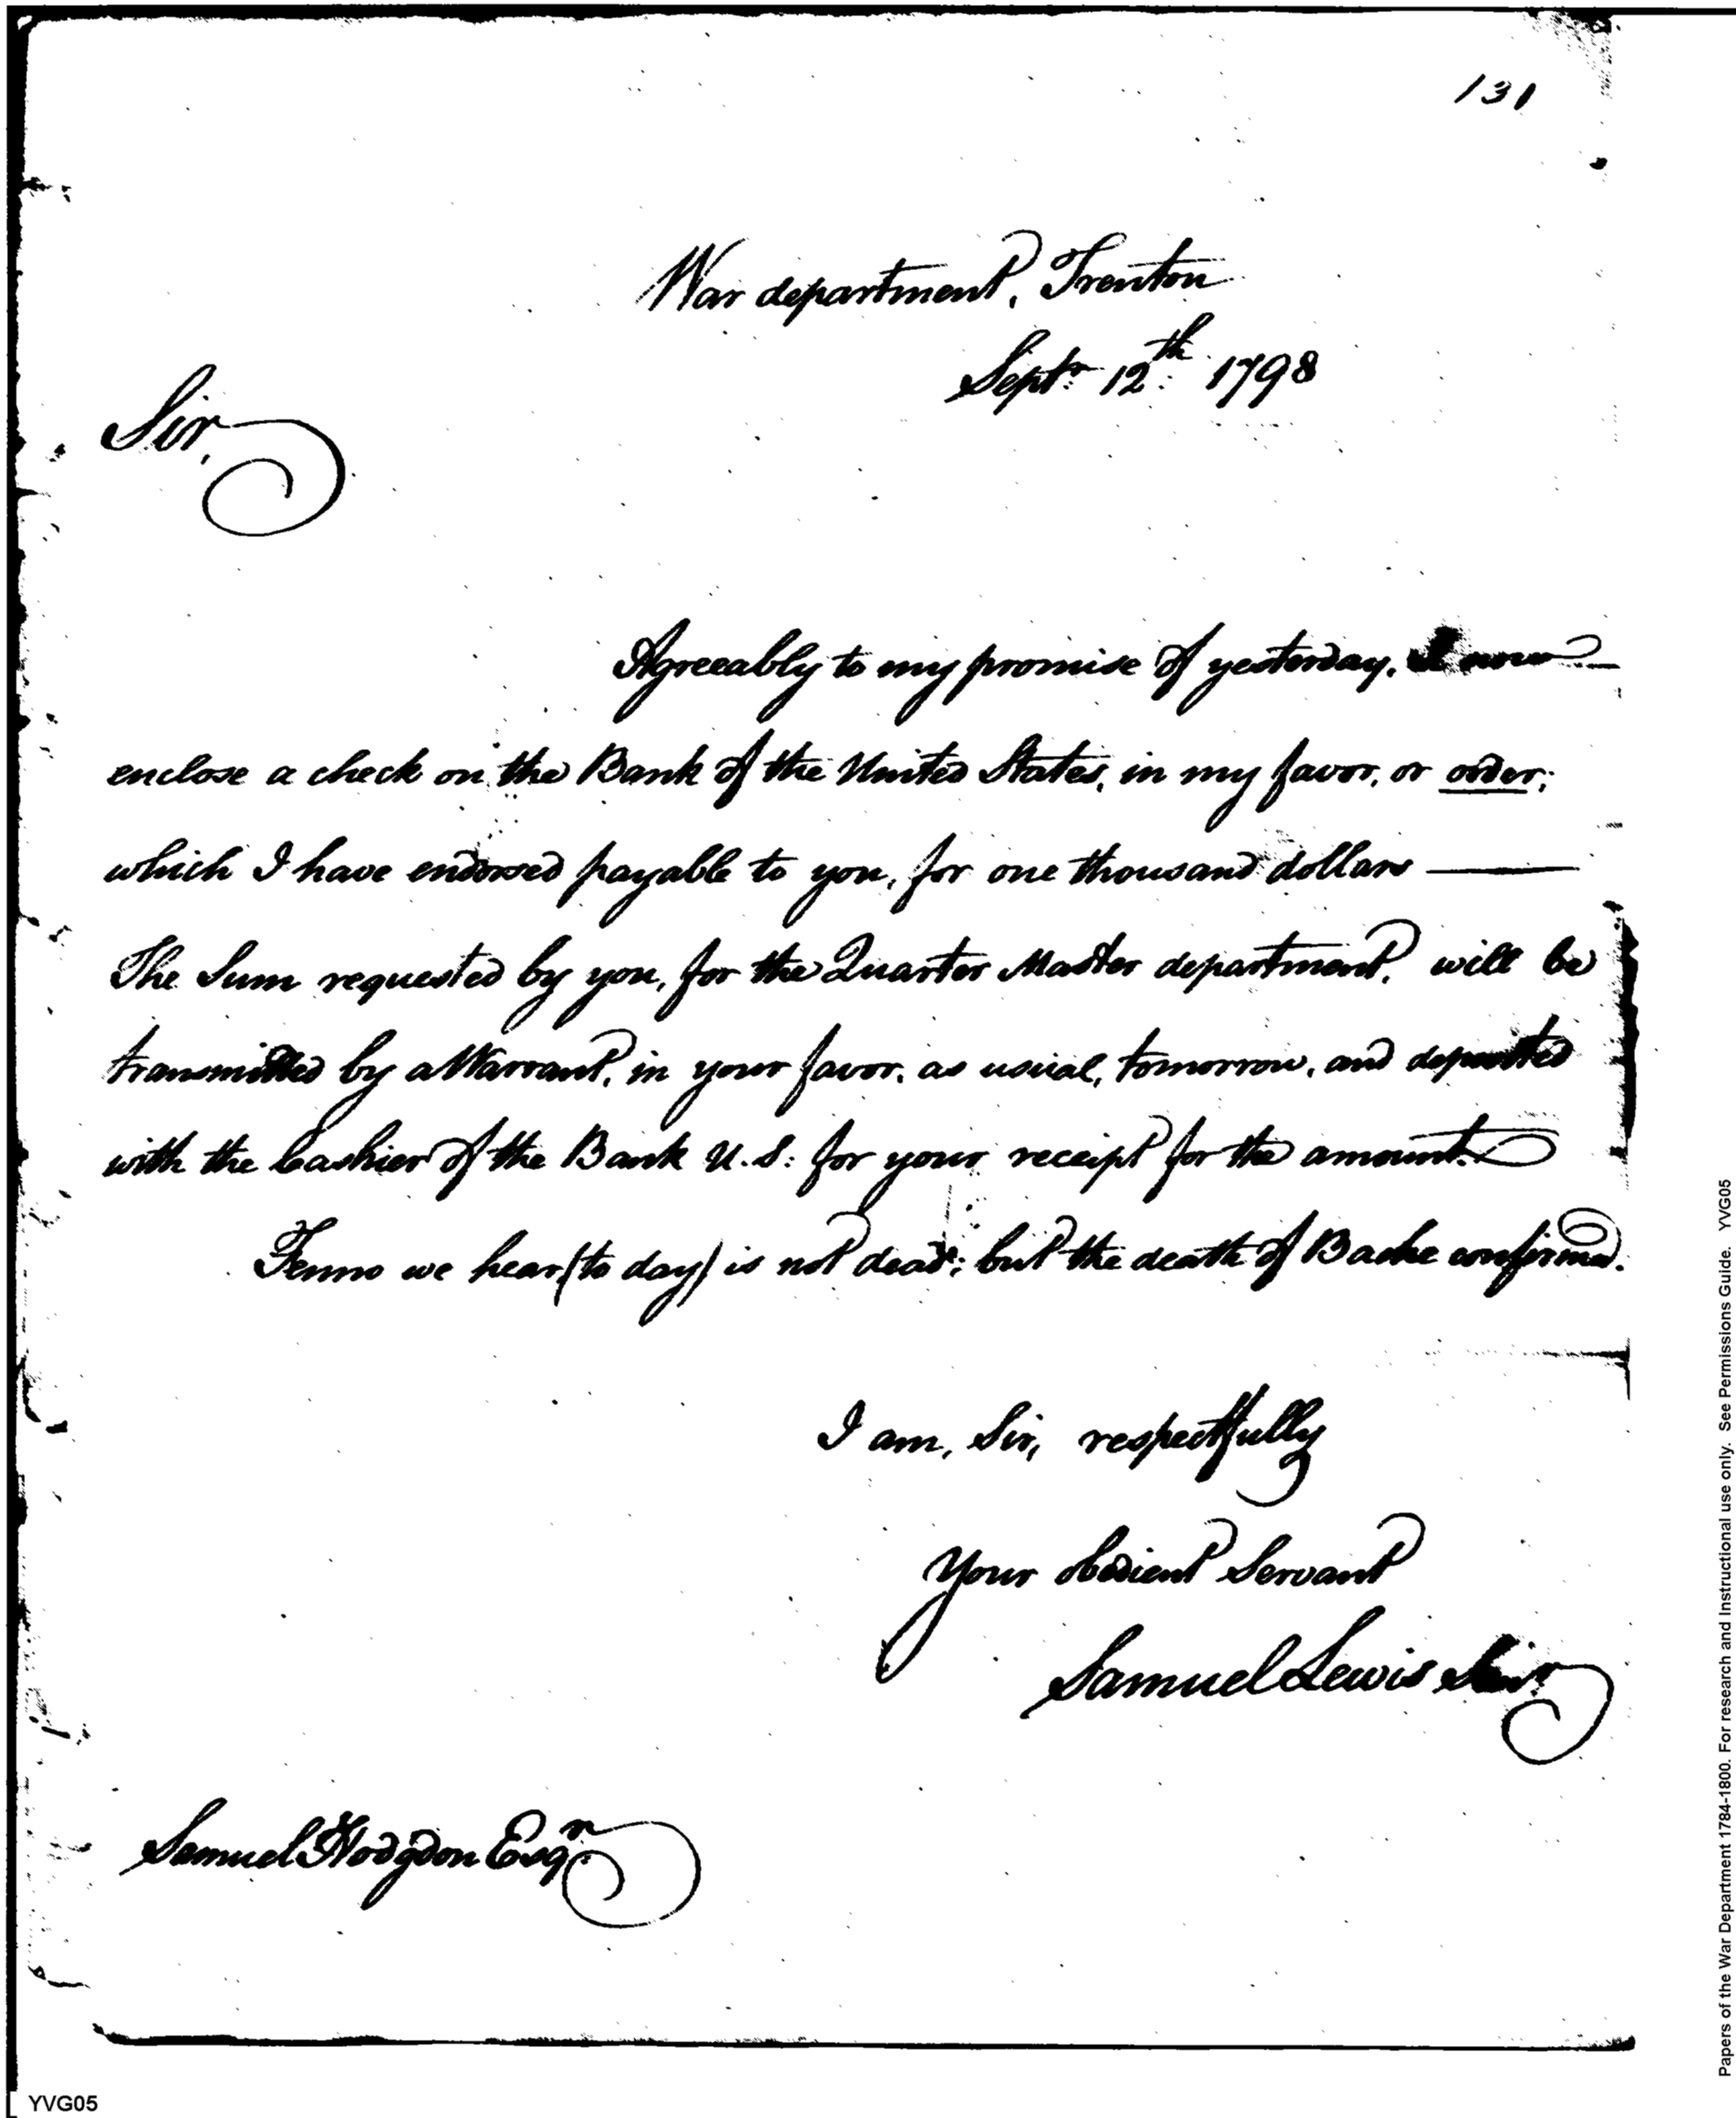 131
War department, Trenton
Septr. 12th. 1798
Sir,
Agreeably to my promise of yesterday, I now
enclose a check on the Bank of the United States, in my favor, or order;
which I have endorsed payable to you, for one thousand dollars —
The Sum requested by you, for the Quarter Master department, will be
transmitted by a Warrant, in your favor, as usual, tomorrow, and deposited
with the Cashier of the Bank U.S: for your receipt for the amount.
Fenno we hear (to day) is not dead; but the death of Bache confirmed.
I am, Sir, respectfully
Your obedient Servant
Samuel Lewis Senr.
Samuel Hodgdon Esqr.
Papers of the War Department 1784-1800. For research and Instructional use only. See Permissions Guide. YVG05
YVG05